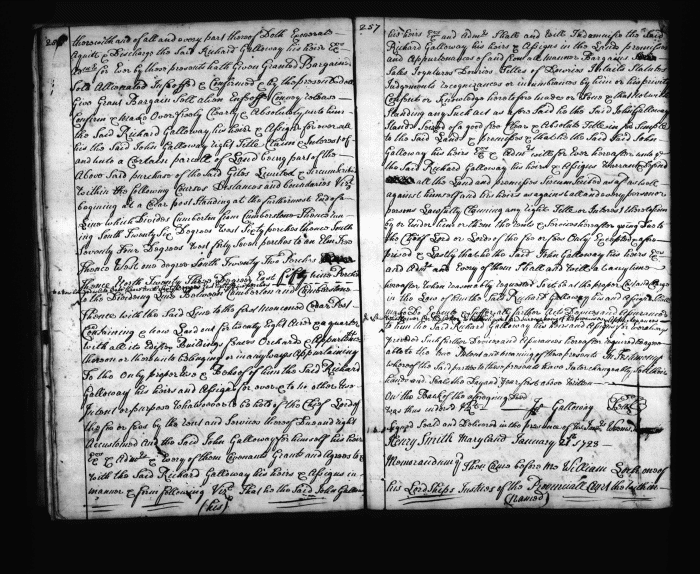 256
therewith and of all and every part thereof Doth Exonerate
Aquitt & Discharge the Said Richard Galloway his heirs Exrs
for Ever by these presents hath Given Granted Bargained
Sold Alienated Infeoffed & Confirmed & by these presents doth
Give Grant Bargain Sell alien Enfeoff Convey release
Confirm & make Over freely Clearly & Absolutely unto him
the Said Richard Galloway his heirs & Assigns for ever all
his the Said John Galloway right Title Claim Interest of
and unto a Certain parcell of Land being part of the
Above Said purchase of the Said Giles Limited & Circumscribed
within the following Courses Distances and boundaries Vizt
beginning at a Cedar post Standing at the furthermost End of a
Line which Divides Cumberton from Cumberstone Thence run-
ing South Twenty Six Degrees West Sixty perches thence South
Seventy Four Degrees West fifty Seven perches to an Elm Tree
Thence West one degree South Twenty Two Perches
Thence North Twenty Three Degrees East fifty three Perches
to the Dividing Line Between Cumberton and Cumberstone
Thence with the Said Line to the first mentioned Cedar Post
Containing & now Laid out for Twenty Eight Acres & a quarter
with all its Edifices Buildings Barns Orchards & Appurtenances
thereon or thereunto belonging or in any ways Appurtaining
To the Only proper use & Behoof of him the Said Richard
Galloway his heirs and Assigns for ever & to no other use
Intent or purpose Whatsoever to be held of the Chief Lord of
the fee or fees by the rent and Services thereof Due and right
Accustomed And the Said John Galloway for himself his heirs
Exrs & Admrs & every of them Covenants Grants and agrees by
With the Said Richard Galloway his heirs & Assigns in
manner & form following Vizt That he the Said John Galloway
(his)
257
his heirs Exrs and Admrs Shall and will Indemnifie the Said
Richard Galloway his heirs & Assigns in the Lands premisses
and Appurtenances of and from all manner Bargains
Sales Joyntures Dowries Titles of Dowries Intails Statutes
Judgements recognizances or incumbrances by him or his privity
Consent or Knowledge heretofore made or Done & that notwith
Standing any Such act as afore Said he the Said John Galloway
Stands Seized of a good Sure Clear & Absolute Title in fee Simple
to the Said Land & premisses & that he the Said John
Galloway his heirs Exrs & Admrs will for Ever hereafter unto
the Said Richard Galloway his heirs & Assigns Warrant & Defend
all the Land and premisses Circumscribed as afs as well
against himself and his heirs as against all and every person or
persons Lawfully Claiming any right Title or Interest thereto
by or under him or them the rents & Services hereafter going Due to
the Chief Lord or Lords of the fee or fees Only Excepted afore
prised & Lastly that he the Said John Galloway his heirs Exrs
and Admrs and Every of them Shall and Will at any time
hereafter When reasonably requested
in the Law of him the Said Richard Galloway his and Assigns
make Do Execute & Suffer all further Acts Deeds and Assurances
to him the Said Richard Galloway his heirs and Assigns for
provided Such further Deeds and Assurances hereafter required be agree
able to the true Intent and meaning of these presents In Testimony
whereof the Said parties to these presents have Interchangeably Set their
hands and Seals the Day and Year first above Written
On the Back of the aforegoing Deed
was thus indorsed Viz
Jn Galloway Seal
Signed Seal and Delivered in the presence of
Henry Smith Maryland January 21st 1728
Memorandum Then Came before me William Lock one of
his Lordships Justices of the Provinciall Court the within
(named)